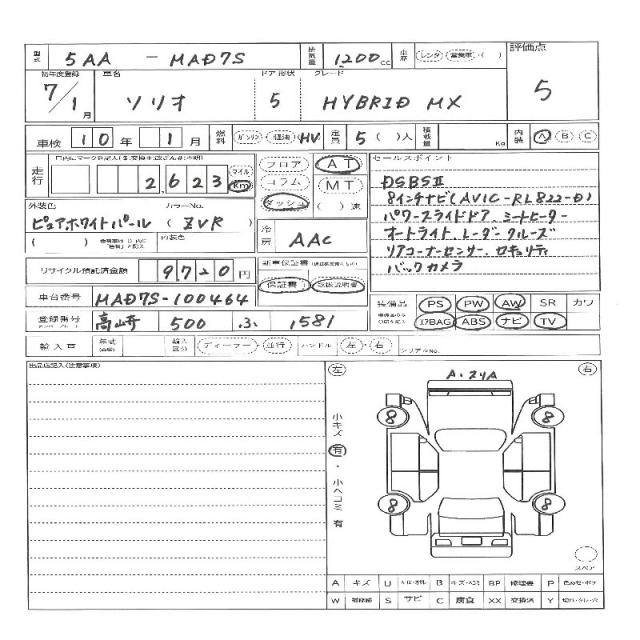 型式 5AA - MAD7S 排気量 1200 cc 車歴 レンタ ・ 営業車 ・( ) 評価点
初年度登録 車名 ドア 形状 グレード
7/1 月 ソリオ 5 HYBRID MX 5
車検 10 年 1 月 燃料 ガソリン ・ 軽油 ・ HV 定員 5 ( )人 積載量 Kg 内装 A B C
走行 2,623 マイル Km フロア AT セールスポイント
コラム MT DSBSⅡ
外装色 カラーNo. ダッシュ ( )速 8インチナビ(AVIC-RL822-D)
ピュアホワイトパール ( ZVR ) パワースライドドア、ミートヒーター
( ) 内装色 冷房 AAC オートライト、レーダークルーズ
リサイクル預託済金額 9720 円 新車保証書 リアコーナーセンサー、セキュリティ
保証書 取扱説明書 バックカメラ
車台番号 MAD7S-100464 装備品 PS PW AW SR カワ
登録番号 高崎 500 ふ 1581 I7BAG ABS ナビ TV
輸入車 年式 輸入区分 ディーラー ・ 並行 ハンドル 左 ・ 右 シリアルNo.
出品店記入(注意事項) 左 右
A・24A
小キズ 有 ・ 小ヘコミ 有
8 8
8 8
スペア
A キズ U B キズ・ヘコミ BP 修理機 P 色あせ・ボケ
W 補修跡 S サビ C 腐食 XX 交換済 Y 切れ・ワレ・穴